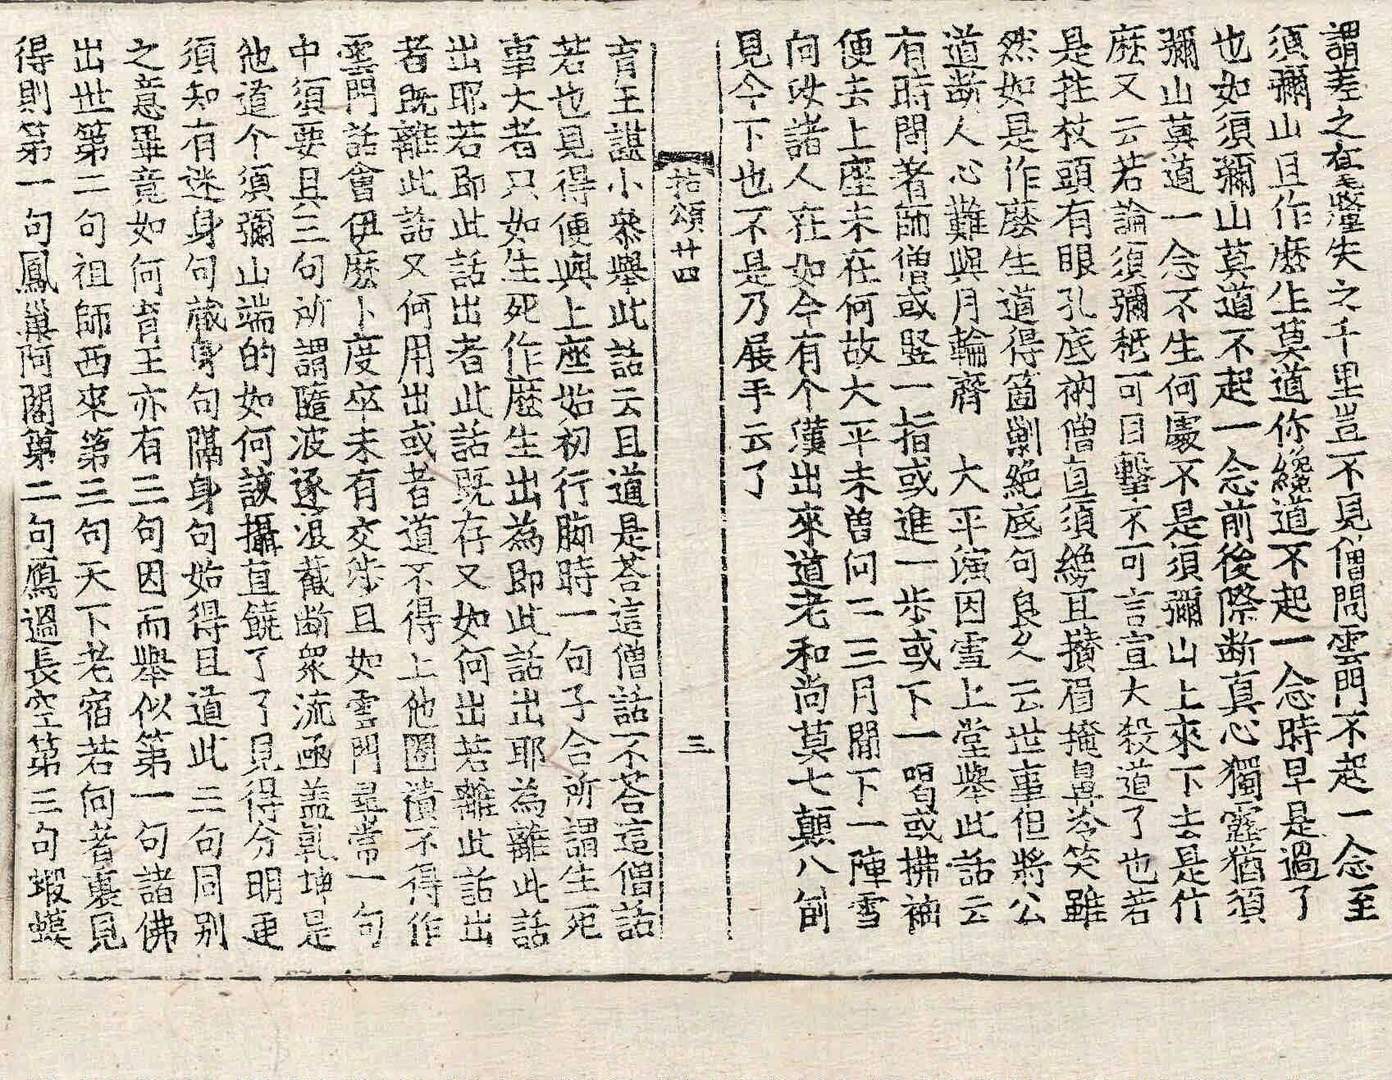 謂差之毫釐失之千里豈不見僧問雲門不起一念至
須彌山且作麽生莫道你纔道不起一念時早是過了
也如須彌山莫道不起一念前後際断真心獨靈猶須
彌山莫道一念不生何處不是須彌山上來下去是什
麽又云若論須彌秪可目擊不可言宣大殺道了也若
是拄杖頭有眼孔底衲僧直須緫且攢眉掩鼻冷笑雖
然如是作麽生道得箇剿絶底句良久云世事但將公
道断人心難與月輪齊 大平演因雪上堂舉此話云
有時問著師僧或竪一指或進一步或下一喝或拂袖
便去上座未在何故大平未曾问二三月閒下一陣雪
向汝諸人在如今有个漢出來道老和尚莫七顛八倒
見今下也不是乃展手云了
拈頌廿四 三
育王諶小叅舉此話云且道是荅這僧話不荅這僧話
若也見得便與上座始初行脚時一句子合所謂生死
事大者只如生死作麽生出為即此話出耶為離此話
出耶若即此話出者此話既存又如何出若離此話出
者既離此話又何用出或者道不得上他圈潰不得作
雲門話會伊麽卜度卒未有交涉且如雲門尋常一句
中須要具三句所謂隨波逐浪截断衆流凾盖乾坤是
他道个須彌山端的如何該攝直饒了了見得分明更
須知有迷身句藏身句隔身句始得且道此三句同别
之意畢竟如何育王亦有三句因而舉似第一句諸佛
出世第二句祖師西來第三句天下老宿若向者裏見
得則第一句鳳巢阿閣第二句鴈過長空第三句蝦蟆